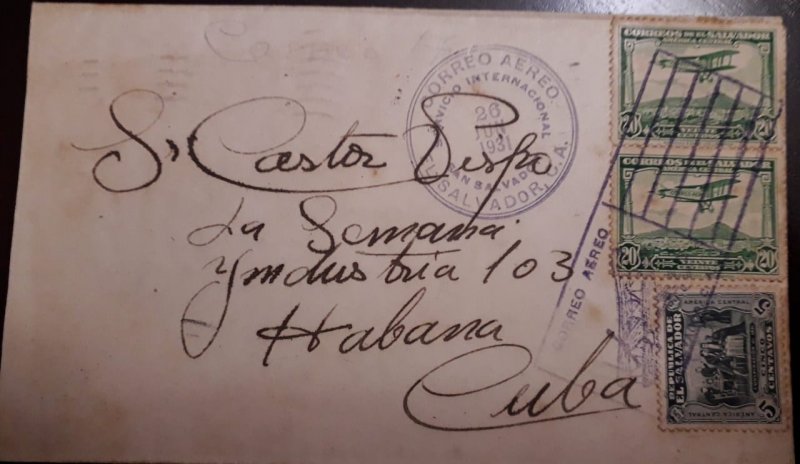 CORREO AEREO
SERVICIO INTERNACIONAL
26
1931
SAN SALVADOR
EL SALVADOR, C.A.
CORREOS DE EL SALVADOR
AMÉRICA CENTRAL
20 VEINTE CENTAVOS 20
CORREOS DE EL SALVADOR
AMÉRICA CENTRAL
20 VEINTE CENTAVOS 20
CORREO AEREO
AMÉRICA CENTRAL
5
REPUBLICA DE
EL SALVADOR
CINCO
CENTAVOS
5
AMÉRICA CENTRAL
5
Sr Castor
La Semana
Yndustria 103
Habana
Cuba